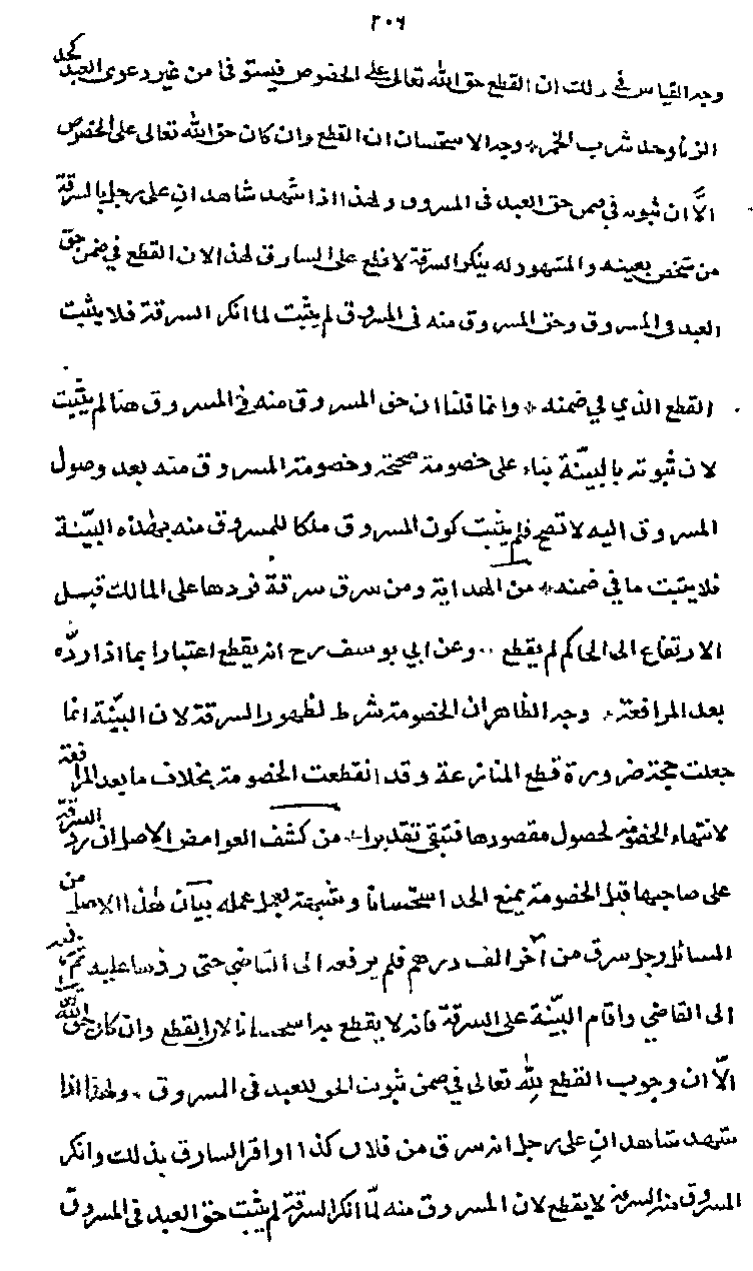 ٢٠٦
وجه القياس في ذلك ان القطع حق الله تعالى على الخصوص فيستوفى من غير دعوى العبد كحد
الزنا وحد شرب الخمر * وجه الاستحسان ان القطع وان كان حق الله تعالى على الخصوص
الّا ان ثبوته في ضمن حق العبد فى المسروق ولهذا اذا شهد شاهدانِ على رجل بالسرقة
من شخص بعينه والمشهود له ينكر السرقة لا قطع على السارق لهذا لان القطع في ضمن حق
العبد فى المسروق وحق المسروق منه فى المسروق لم يثبت لما انكر السرقة فلا يثبت
القطع الذي في ضمنه * وانما قلنا ان حق المسروق منه في المسروق هنا لم يثبت
لان ثبوته بالبيّنة بناء على خصومة صحيحة وخصومة المسروق منه بعد وصول
المسروق اليه لا تصح فلم يثبت كون المسروق ملكا للمسروق منه بهذه البيّنة
فلا يثبت ما في ضمنه * من الهداية ومن سرق سرقة فردها على المالك قبل
الارتفاع الى الحاكم لم يقطع .. وعن ابي يوسف رح انه يقطع اعتبارا بما اذا ردّه
بعد المرافعة . وجه الظاهر ان الخصومة شرط لظهور السرقة لان البيّنة انما
جعلت حجة ضرورة قطع المنازعة وقد انقطعت الخصومة بخلاف ما بعد المرافعة
لانتهاء الخصومة لحصول مقصودها فتبقى تقديرا * من كشف الغوامض الاصل ان رد السرقة
على صاحبها قبل الخصومة يمنع الحد استحسانا وشبهة لعمل عمله بيان هذا الاصل من
المسائل رجل سرق من آخر الف درهم فلم يرفعه الى القاضي حتى ردها عليه ثم رفعه
الى القاضي واقام البيّنة على السرقة فانه لا يقطع يده استحسانا لان القطع وان كان حق الله
الّا ان وجوب القطع لِلّٰه تعالى في ضمن ثبوت الحق للعبد فى المسروق . ولهذا اذا
شهد شاهدانِ على رجل انه سرق من فلان كذا او اقر السارق بذلك وانكر
المسروق منه السرقة لا يقطع لان المسروق منه لمّا انكر السرقة لم يثبت حق العبد فى المسروق